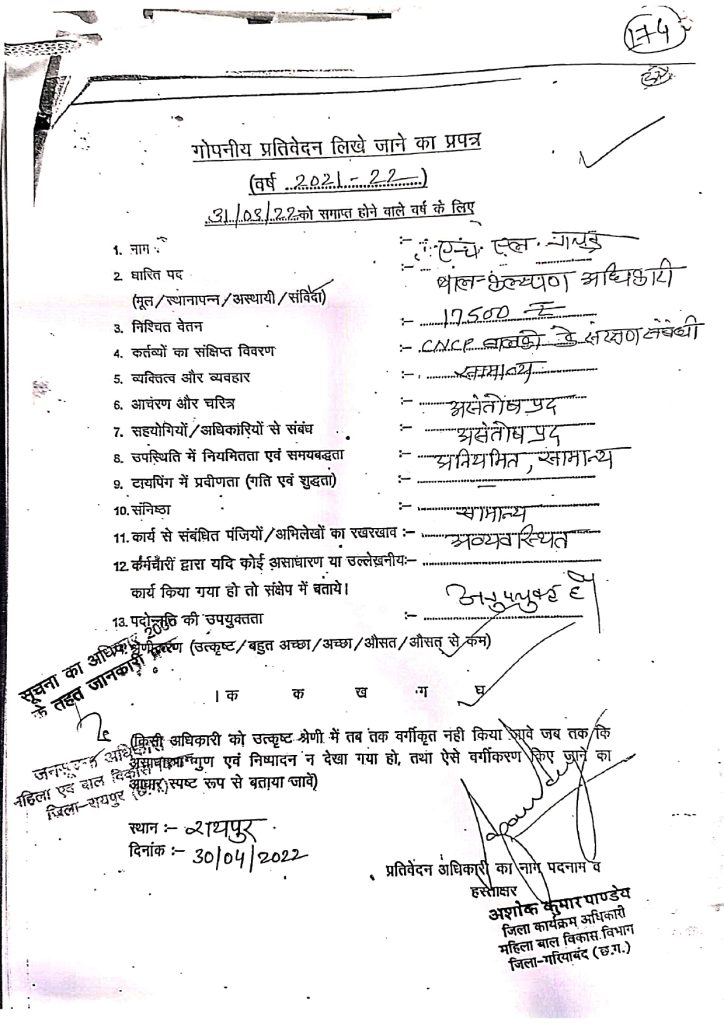 174
गोपनीय प्रतिवेदन लिखे जाने का प्रपत्र
(वर्ष 2021-22)
31/03/22 को समाप्त होने वाले वर्ष के लिए
1. नाम :- एच. एल.
2. धारित पद :- बाल-कल्याण अधिकारी
(मूल/स्थानापन्न/अस्थायी/संविदा)
3. निश्चित वेतन :- 17500
4. कर्तव्यों का संक्षिप्त विवरण :- CNCP बालकों के संरक्षण संबंधी
5. व्यक्तित्व और व्यवहार :- सामान्य
6. आचंरण और चरित्र :- असंतोषप्रद
7. सहयोगियों/अधिकारियों से संबंध :- असंतोषप्रद
8. उपस्थिति में नियमितता एवं समयबद्धता :- अनियमित, सामान्य
9. टायपिंग में प्रवीणता (गति एवं शुद्धता) :- –
10. संनिष्ठा :- सामान्य
11. कार्य से संबंधित पंजियों/अभिलेखों का रखरखाव :- अव्यवस्थित
12. कर्मचारी द्वारा यदि कोई असाधारण या उल्लेखनीय:-
कार्य किया गया हो तो संक्षेप में बताये।
13. पदोन्नति की उपयुक्तता :- अनुपयुक्त है
श्रेणीकरण (उत्कृष्ट/बहुत अच्छा/अच्छा/औसत/औसत् से कम)
सूचना का अधिकार 2005
के तहत जानकारी
। क क ख ग घ
(किसी अधिकारी को उत्कृष्ट श्रेणी में तब तक वर्गीकृत नही किया जावे जब तक कि
असाधारण गुण एवं निष्पादन न देखा गया हो, तथा ऐसे वर्गीकरण किए जाने का
आधार स्पष्ट रूप से बताया जावें)
जनसूचना अधिकारी
महिला एवं बाल विकास
जिला-रायपुर (छ.ग.)
स्थान :- रायपुर
दिनांक :- 30/04/2022
प्रतिवेदन अधिकारी का नाम पदनाम व
हस्ताक्षर
अशोक कुमार पाण्डेय
जिला कार्यक्रम अधिकारी
महिला बाल विकास विभाग
जिला-गरियाबंद (छ.ग.)